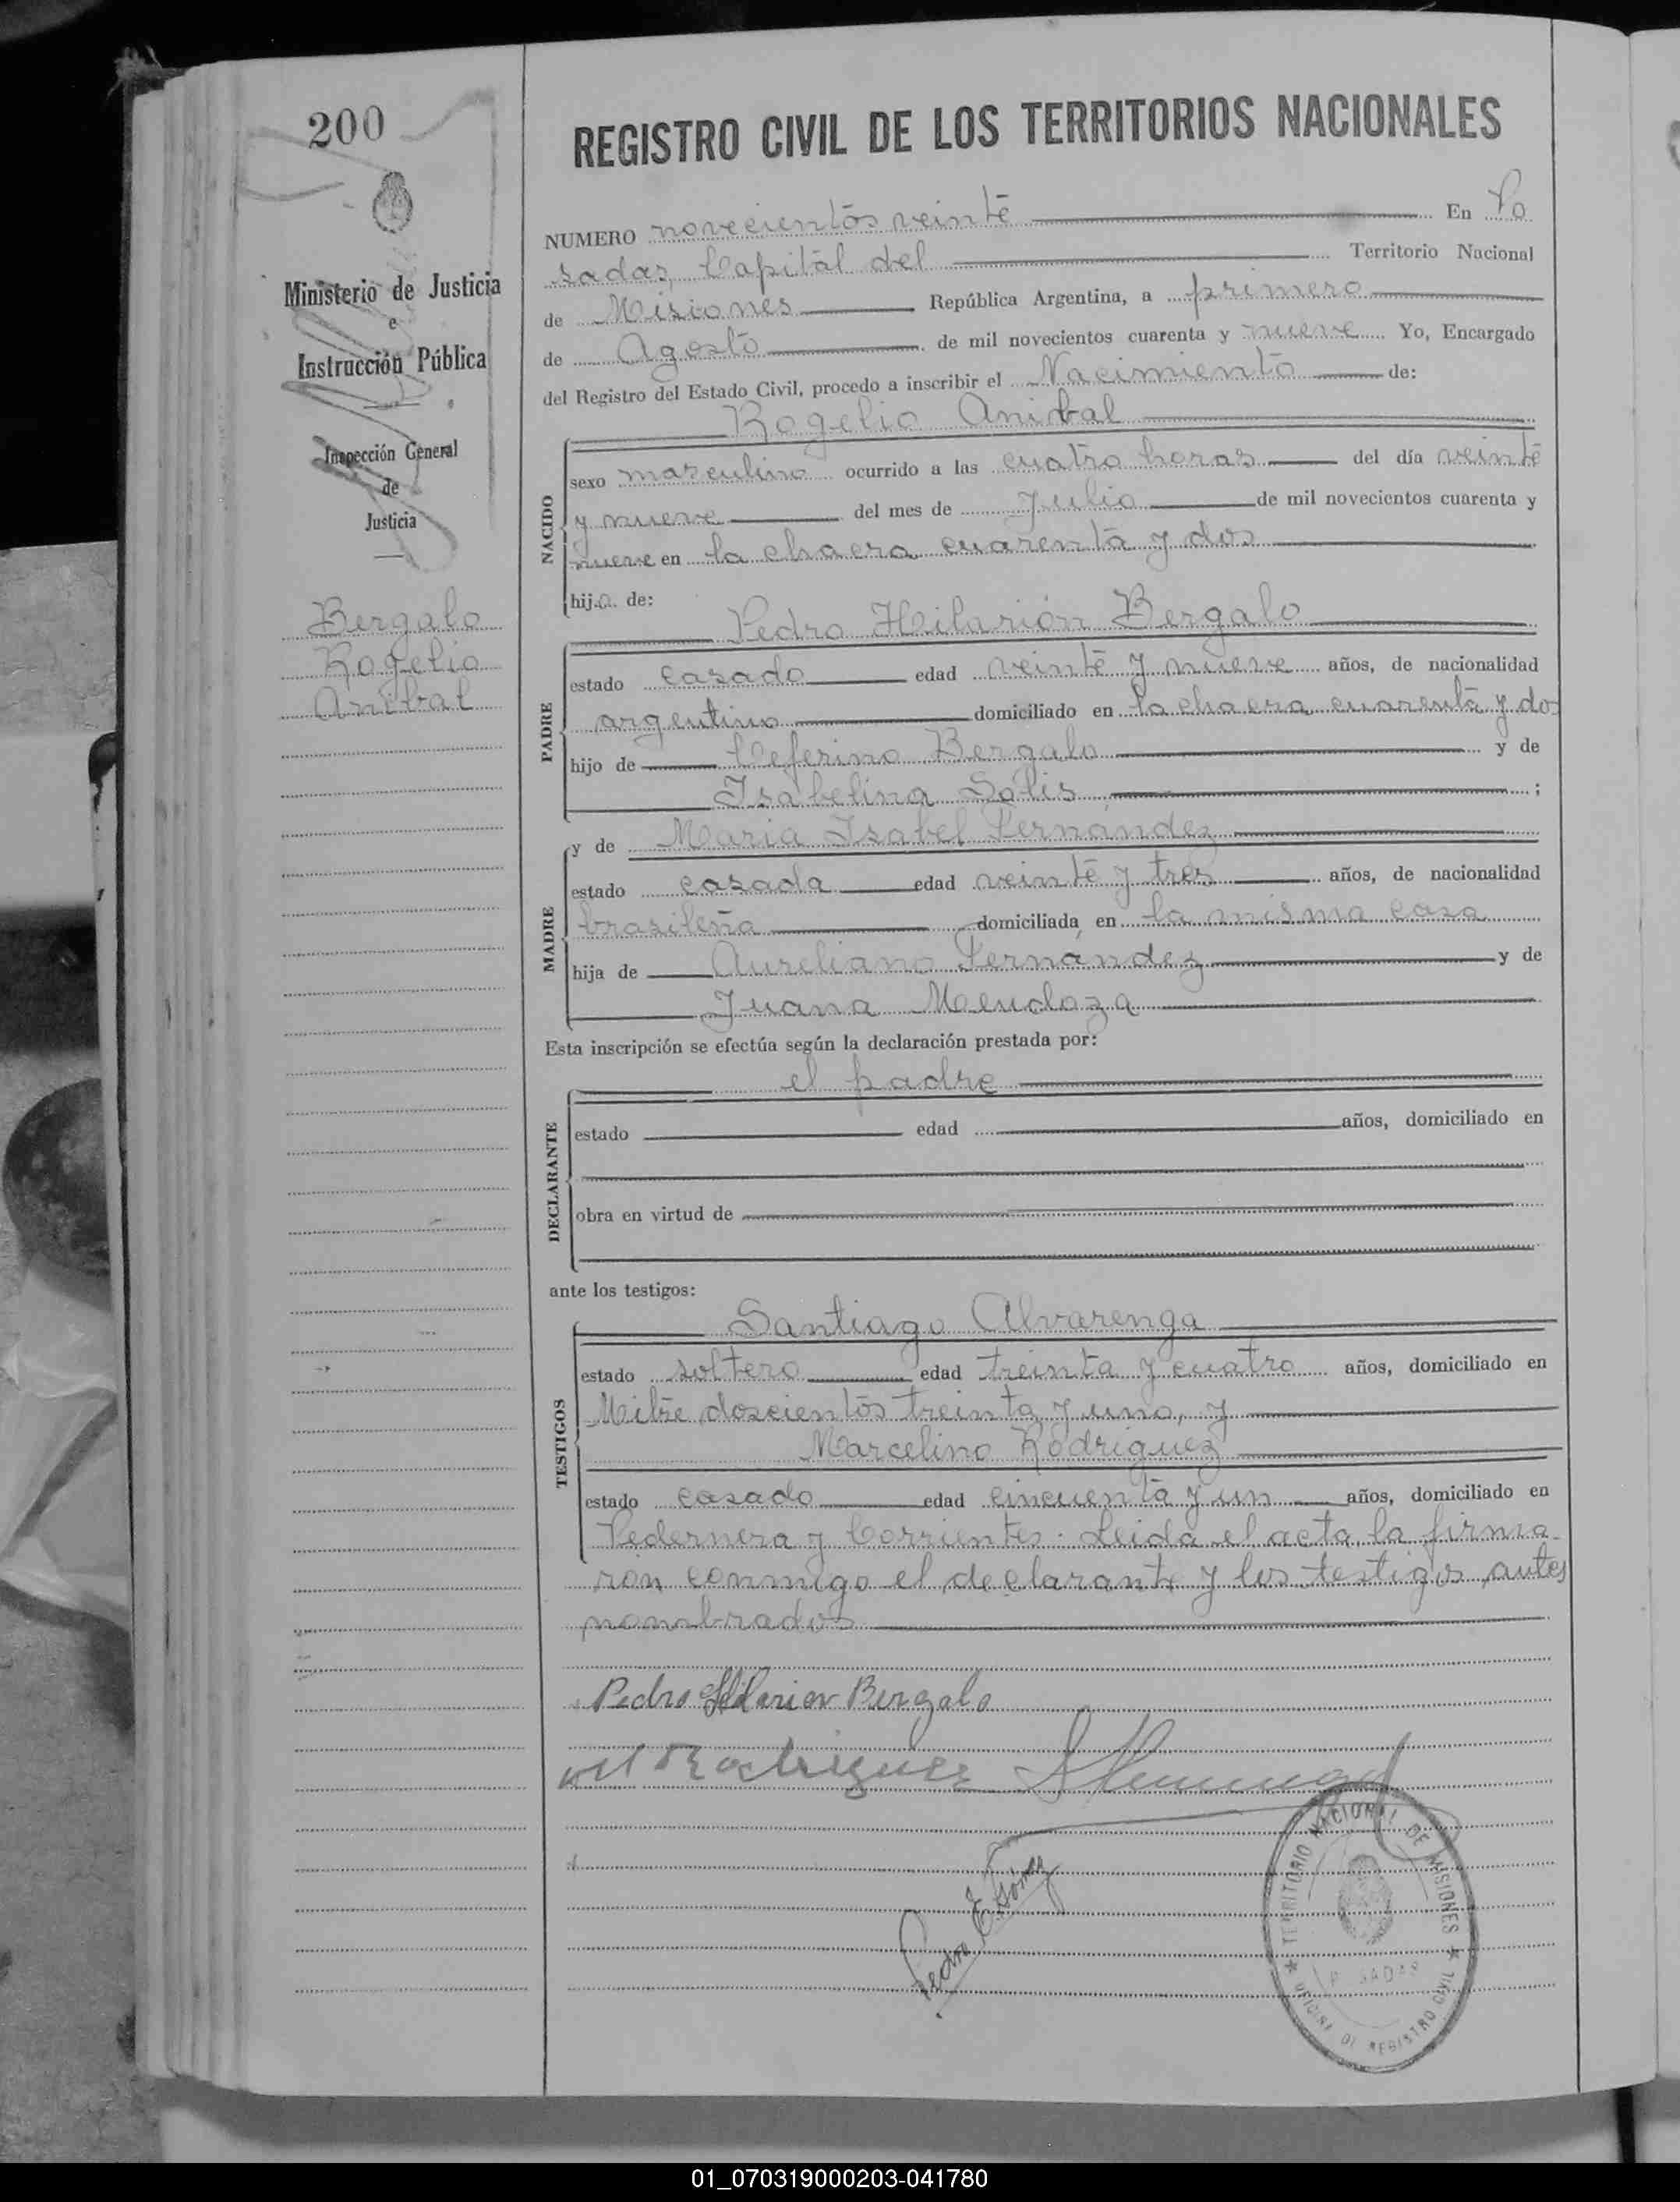 200
Ministerio de Justicia
e
Instrucción Pública
Inspección General
de
Justicia
Bergalo
Rogelio
Anibal
REGISTRO CIVIL DE LOS TERRITORIOS NACIONALES
NUMERO novecientos veinte En Po
sadas, Capital del Territorio Nacional
de Misiones República Argentina, a primero
de Agosto de mil novecientos cuarenta y nueve Yo, Encargado
del Registro del Estado Civil, procedo a inscribir el Nacimiento de:
Rogelio Anibal
NACIDO
sexo masculino ocurrido a las cuatro horas del día veinte
y nueve del mes de Julio de mil novecientos cuarenta y
nueve en la chacra cuarenta y dos
hijo de:
Pedro Hilarión Bergalo
PADRE
estado casado edad veinte y nueve años, de nacionalidad
argentino domiciliado en la chacra cuarenta y dos
hijo de Ceferino Bergalo y de
Isabelina Solis ;
y de Maria Isabel Fernandez
MADRE
estado casada edad veinte y tres años, de nacionalidad
brasileña domiciliada en la misma casa
hija de Aureliano Fernández y de
Juana Mendoza
Esta inscripción se efectúa según la declaración prestada por:
el padre
DECLARANTE
estado edad años, domiciliado en
obra en virtud de
ante los testigos:
Santiago Alvarenga
TESTIGOS
estado soltero edad treinta y cuatro años, domiciliado en
Mitre doscientos treinta y uno, y
Marcelino Rodriguez
estado casado edad cincuenta y un años, domiciliado en
Pedernera y Corrientes. Leida el acta, la firma-
ron conmigo el declarante y los testigos antes
nombrados
Pedro Hilarion Bergalo
M Rodriguez
Pedro E. Gómez
TERRITORIO NACIONAL DE MISIONES
POSADAS
OFICINA DE REGISTRO CIVIL
01_070319000203-041780